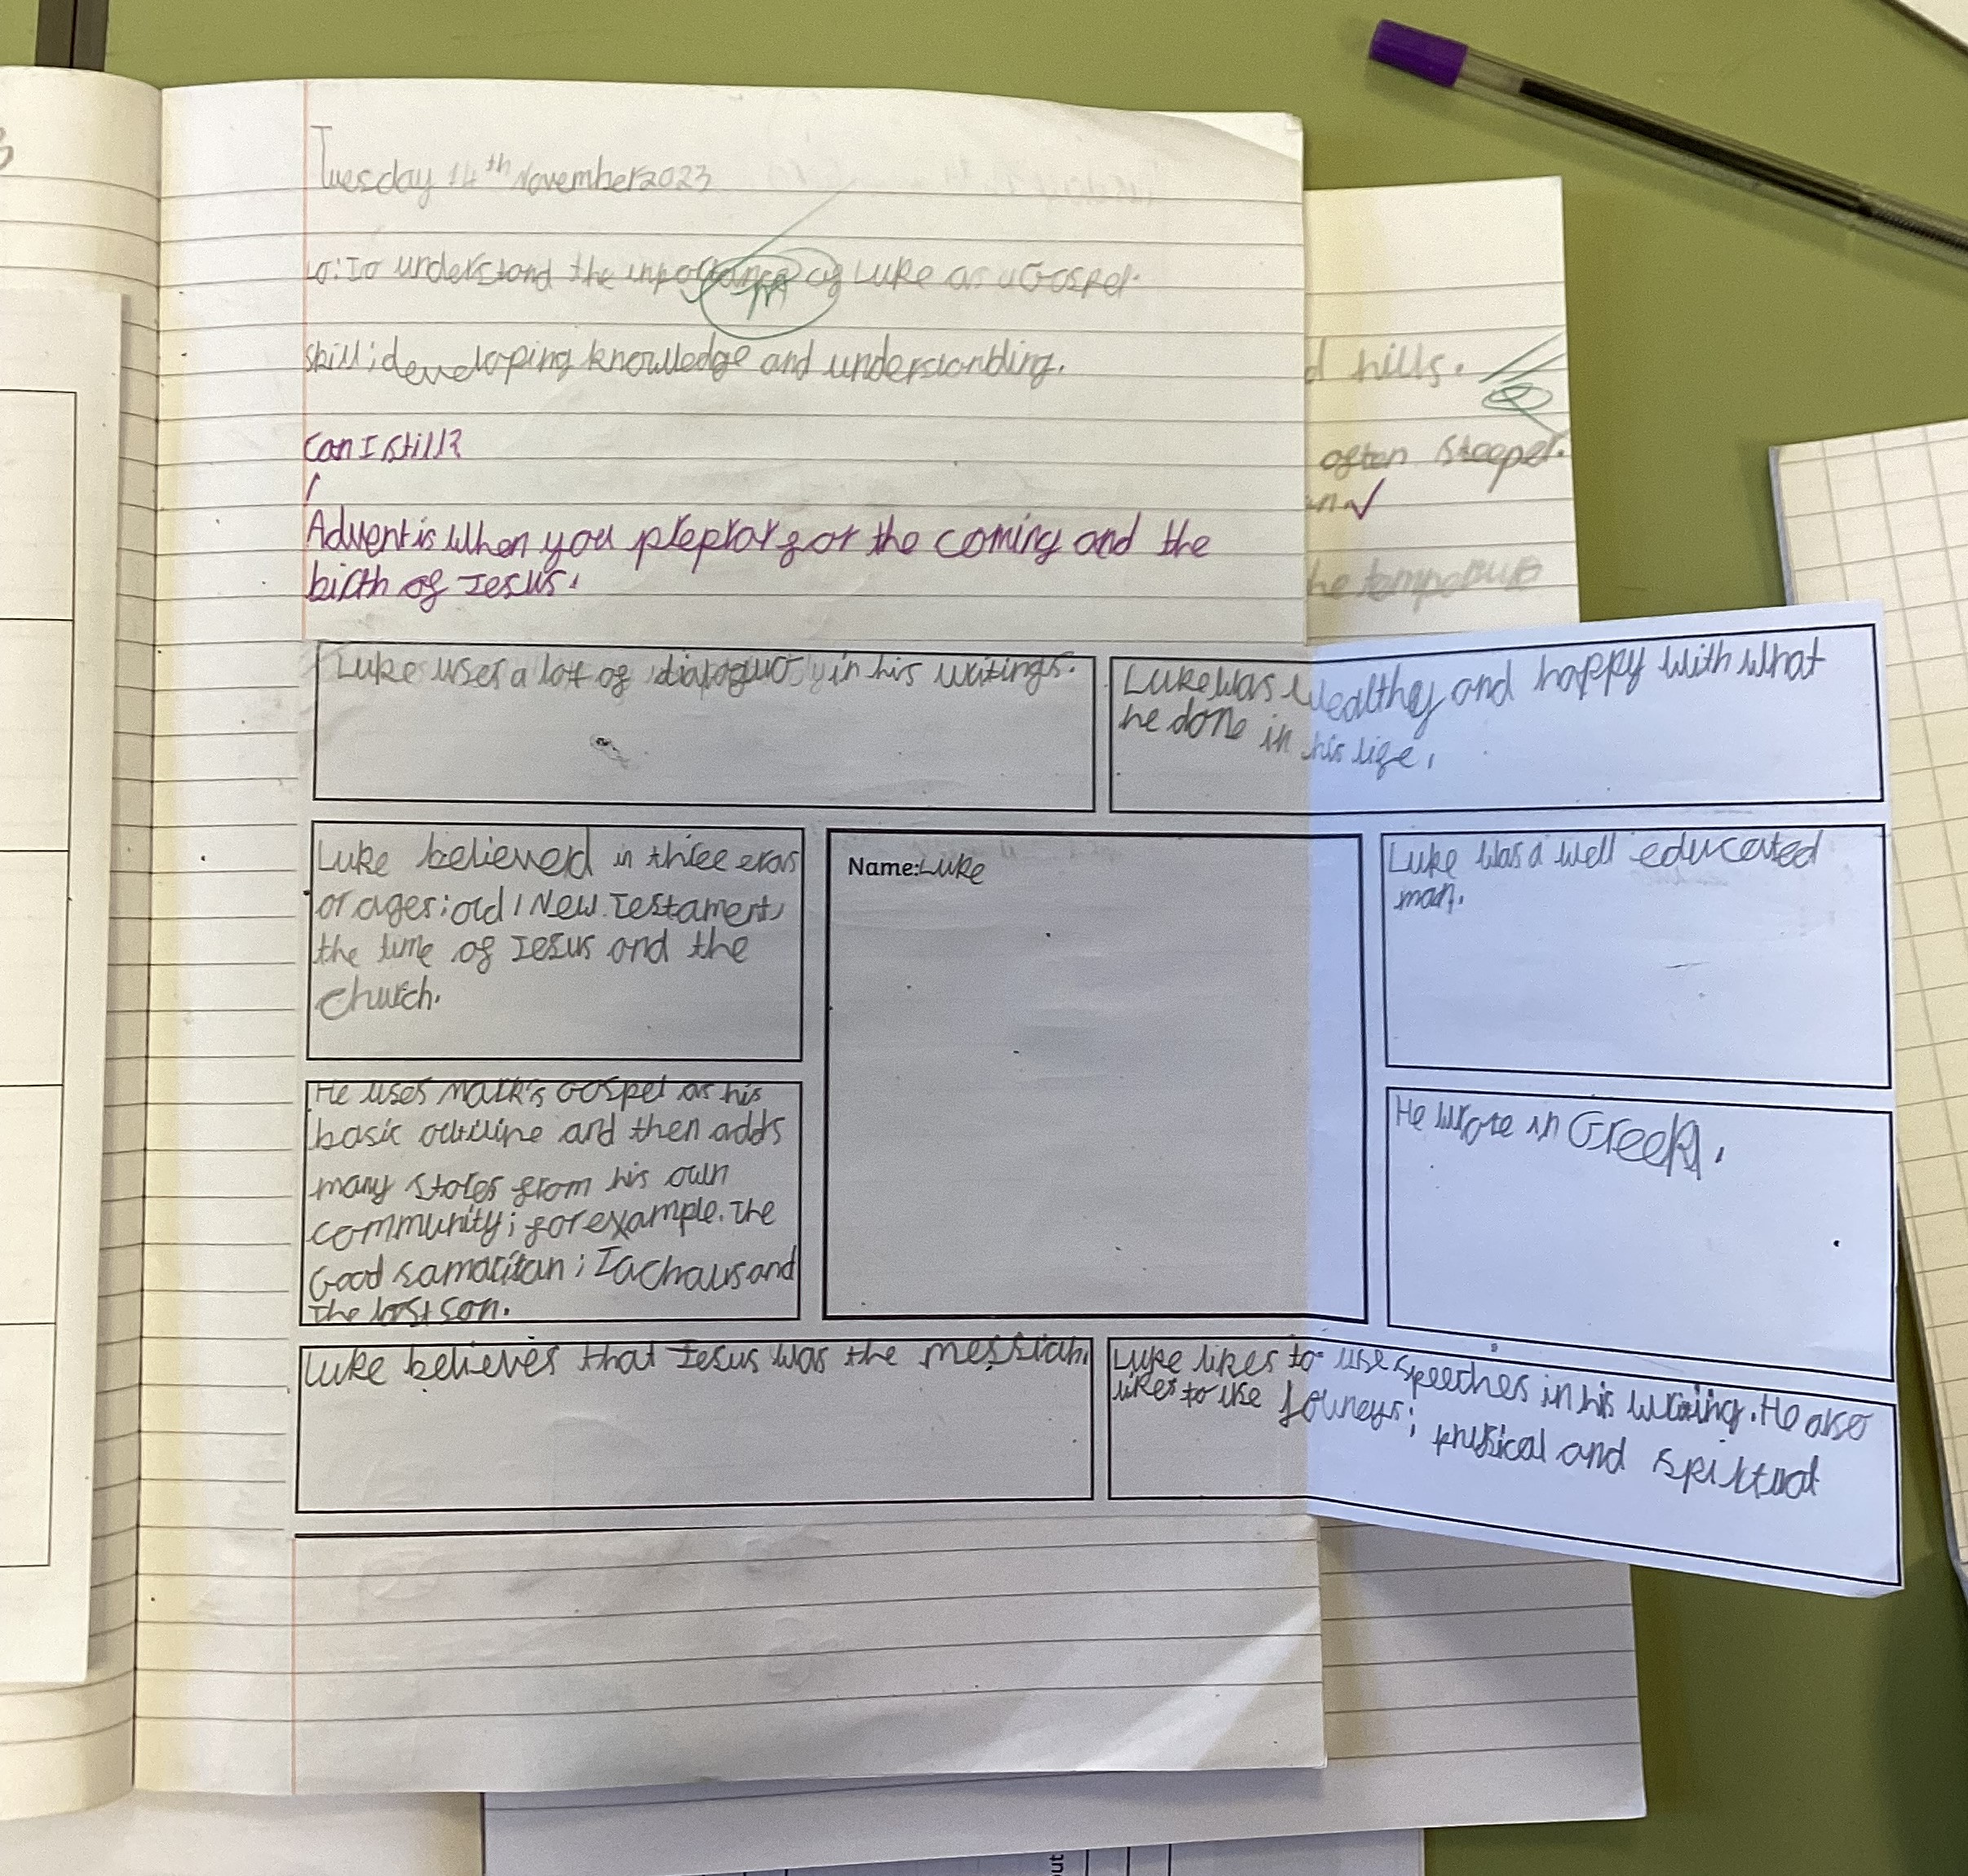 Tuesday 14th November 2023
LO: To understand the importance of Luke as a Gospel.
skill: developing knowledge and understanding.
Can I still?
Advent is when you preprar for the coming and the
birth of Jesus.
d hills.
often steeper.
Luke uses a lot of in his writings.
Luke was wealthy and happy with what
he done in his life.
Luke believed in three eras
or ages: old / New Testament,
the time of Jesus and the
church.
Name: Luke
Luke was a well educated
man.
He uses Mark's Gospel as his
basic outline and then adds
many stores from his own
community; for example. The
Good samaritan; Zachaus and
The lost son.
He wrote in Greek.
Luke believes that Jesus was the messiah.
Luke likes to use speeches in his writing. He also
likes to use Jouneys; phisical and
out